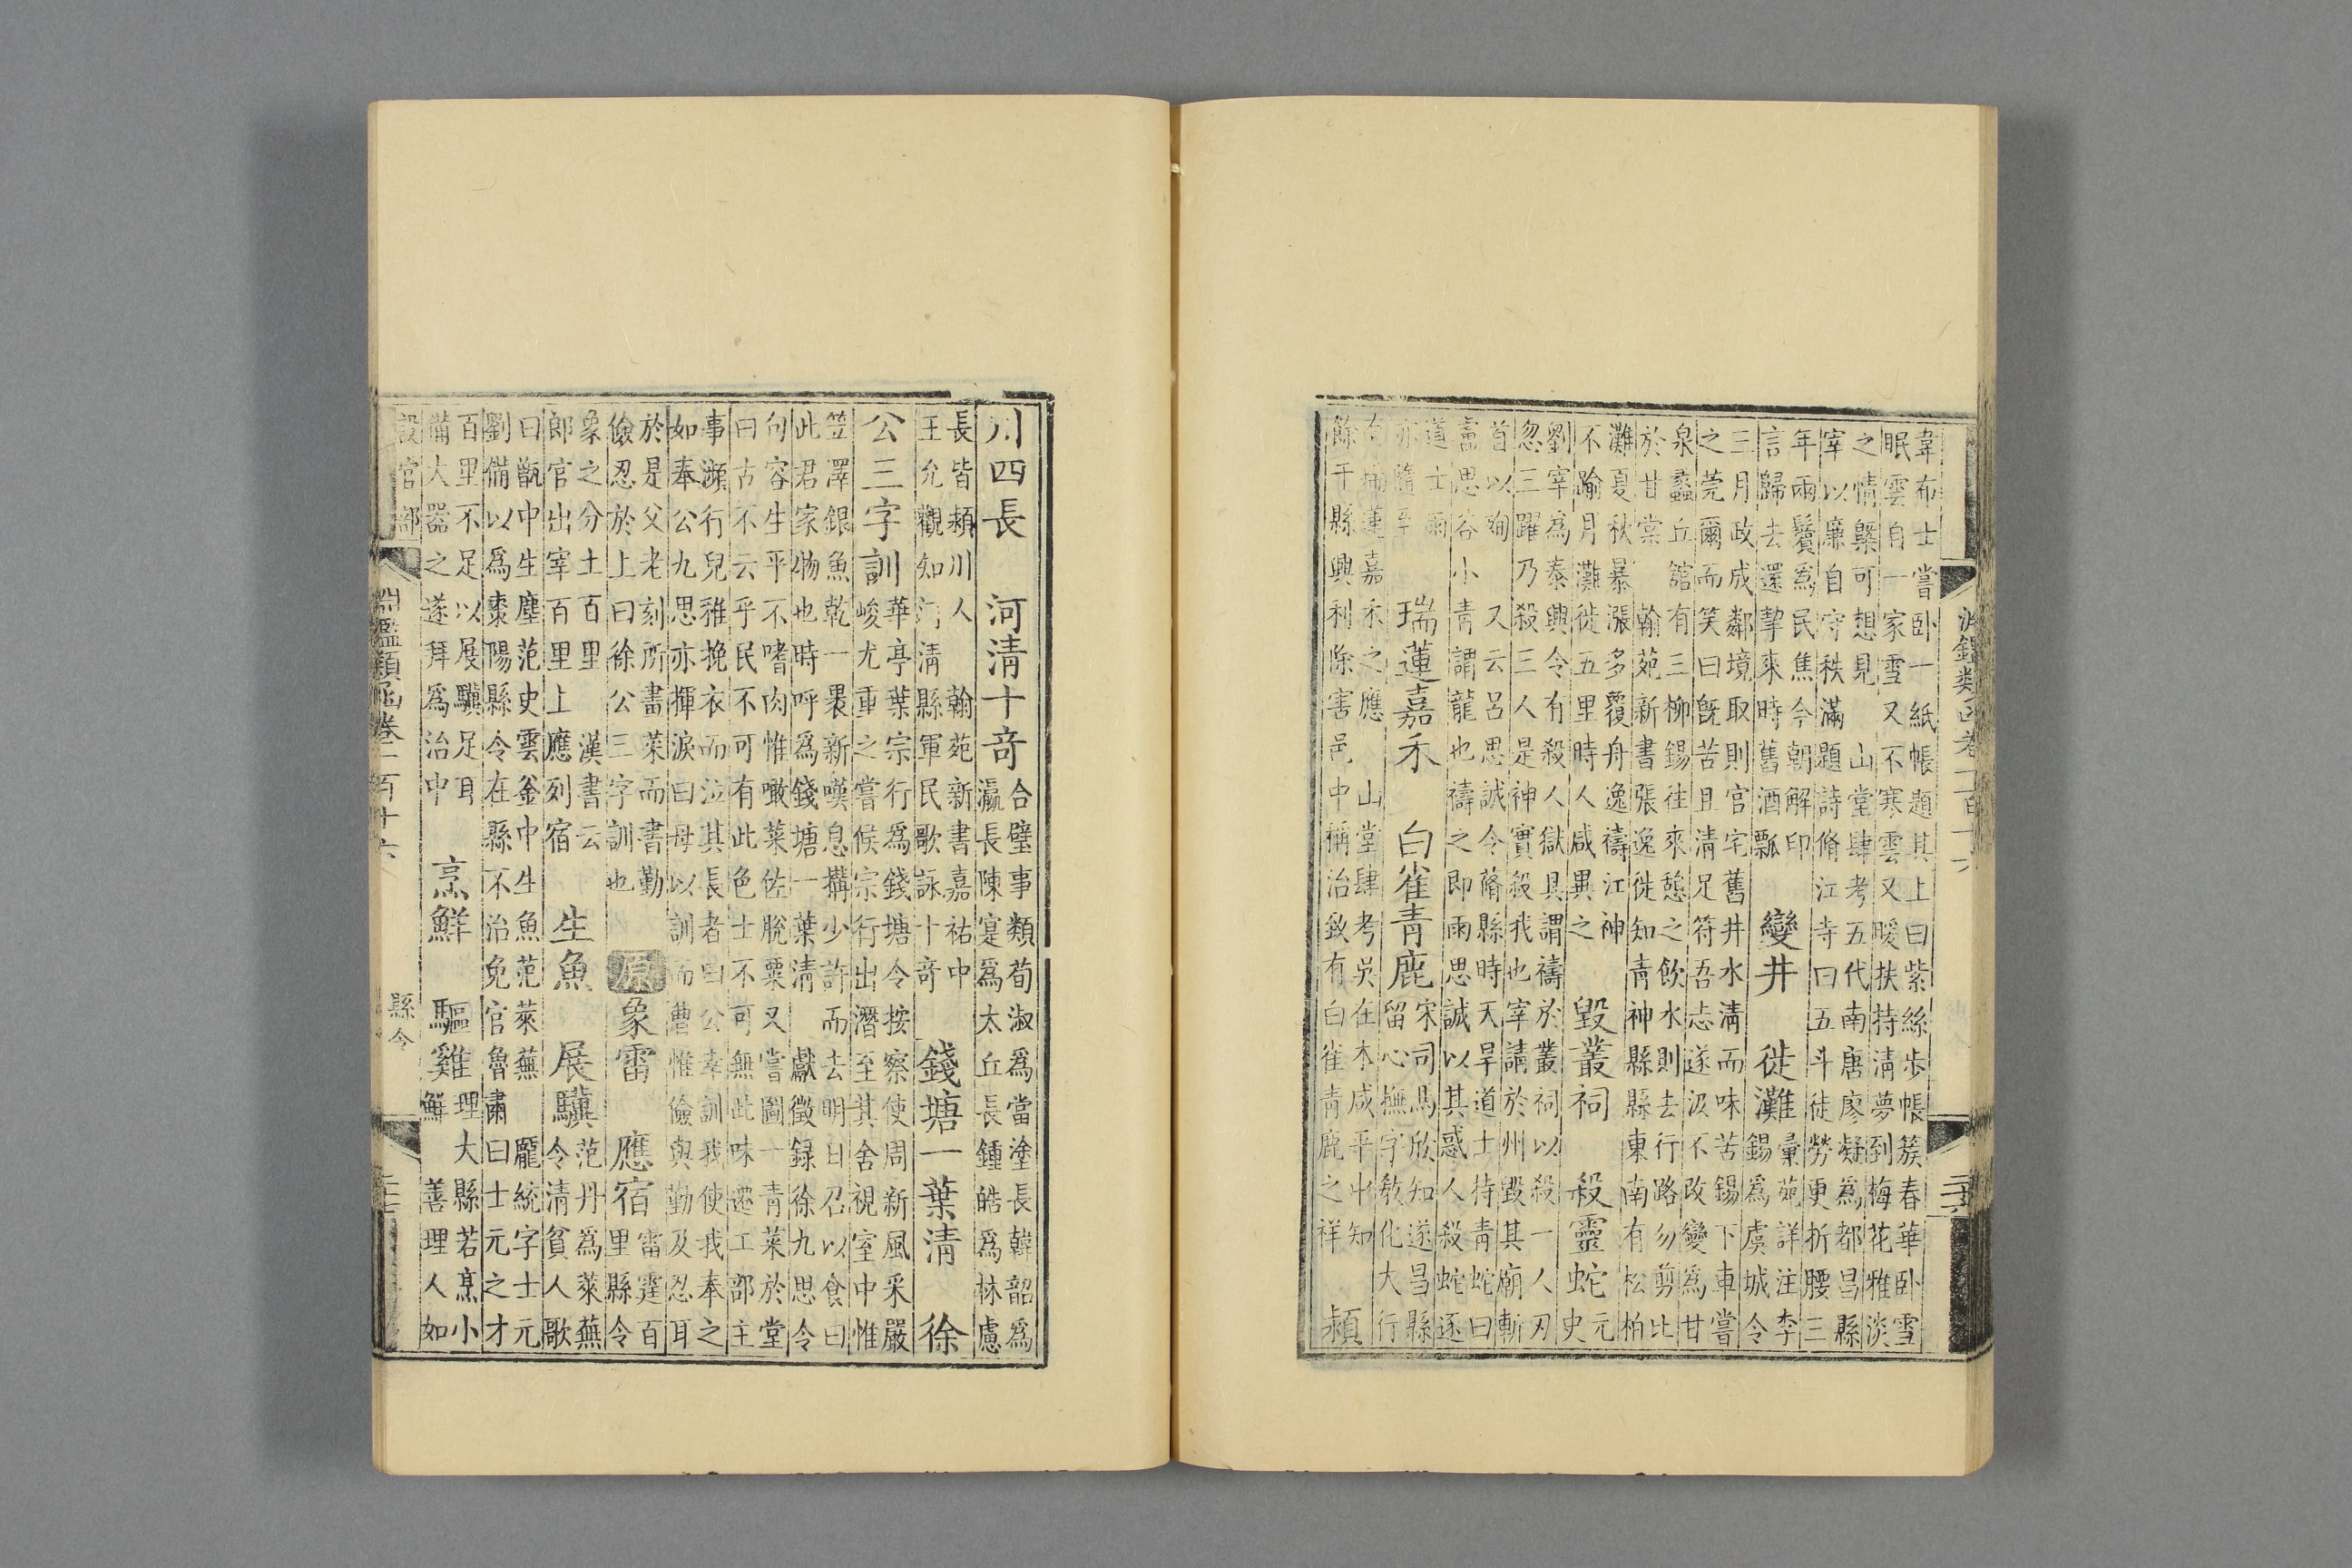 韋布士嘗卧一紙帳題其上曰紫絲步帳簇春華卧雪
眠雲自一家雪又不寒雲又暖扶持清夢到梅花雅淡
之情槩可想見 山堂肆考五代南唐廖凝爲都昌縣
宰以廉自守秩滿題詩脩江寺曰五斗徒勞更折腰三
年兩鬢爲民焦今朝解印
言歸去還挈來時舊酒瓢
變井 徙灘
彙苑詳注李
錫爲虞城令
三月政成鄰境取則官宅舊井水清而味苦錫下車嘗
之莞爾而笑曰旣苦且清足符吾志遂汲不改變爲甘
泉蠡丘舘有三柳錫往來憩之飲水則去行路勿剪比
於甘棠 翰苑新書張逸徙知青神縣縣東南有松柏
灘夏秋暴漲多覆舟逸禱江神
不踰月灘徙五里時人咸異之
毀叢祠 殺靈蛇
元
史
劉宰爲泰興令有殺人獄具謂禱於叢祠以殺一人刃
忽三躍乃殺三人是神實殺我也宰請於州毀其廟斬
首以殉 又云呂思誠令蓨縣時天旱道士持青蛇曰
盧思谷小青謂龍也禱之即雨思誠以其惑人殺蛇逐
道士雨
亦隨至
瑞蓮嘉禾 白雀青鹿
宋司馬欣知遂昌縣
留心撫字教化大行
有瑞蓮嘉禾之應 山堂肆考吳在木咸平中知
餘干縣興利除害邑中稱治致有白雀青鹿之祥
潁
淵鑑類函卷二百十六
川四長 河清十竒
合璧事類荀淑爲當塗長韓韶爲
瀛長陳寔爲太丘長鍾皓爲林慮
長皆潁川人 翰苑新書嘉祐中
王允觀知河清縣軍民歌詠十竒
錢塘一葉清 徐
公三字訓
華亭葉宗行爲錢塘令按察使周新風采嚴
峻尤重之嘗候宗行出潛至其舍視室中惟
笠澤銀魚乾一裹新嘆息攜少許而去明日召以食曰
此君家物也時呼爲錢塘一葉清 獻徵録徐九思令
句容生平不嗜肉惟噉菜佐脫粟又嘗圖一青菜於堂
曰古不云乎民不可有此色士不可無此味遷工部主
事瀕行兒稚挽衣而泣其長者曰公幸訓我使我奉之
如奉公九思亦揮淚曰毋以訓而曹惟儉與勤及忍耳
於是父老刻所畫菜而書勤
儉忍於上曰徐公三字訓也
原
象雷 應宿
雷霆百
里縣令
象之分土百里 漢書云
郎官出宰百里上應列宿
生魚 展驥
范丹爲萊蕪
令清貧人歌
曰甑中生塵范史雲釡中生魚范萊蕪 龐統字士元
劉備以爲耒陽縣令在縣不治免官魯肅曰士元之才
百里不足以展驥足耳
備大器之遂拜爲治中
烹鮮 驅雞
理大縣若烹小
鮮 善理人如
設官部
淵鑑類函卷二百十六
縣令